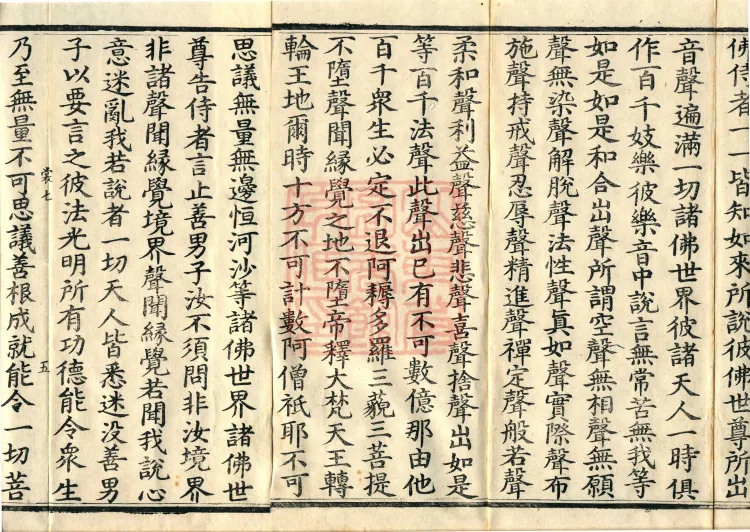 佛侍者一一皆知如來所說彼佛世尊所出
音聲遍滿一切諸佛世界彼諸天人一時俱
作百千妓樂彼樂音中說言無常苦無我等
如是如是和合出聲所謂空聲無相聲無願
聲無染聲解脫聲法性聲真如聲實際聲布
施聲持戒聲忍辱聲精進聲禪定聲般若聲
柔和聲利益聲慈聲悲聲喜聲捨聲出如是
等百千法聲此聲出已有不可數億那由他
百千眾生必定不退阿耨多羅三藐三菩提
不墮聲聞緣覺之地不墮帝釋大梵天王轉
輪王地爾時十方不可計數阿僧祇耶不可
思議無量無邊恒河沙等諸佛世界諸佛世
尊告侍者言止善男子汝不須問非汝境界
非諸聲聞緣覺境界聲聞緣覺若聞我說心
意迷亂我若說者一切天人皆悉迷沒善男
子以要言之彼法光明所有功德能令眾生
裳七 五
乃至無量不可思議善根成就能令一切菩